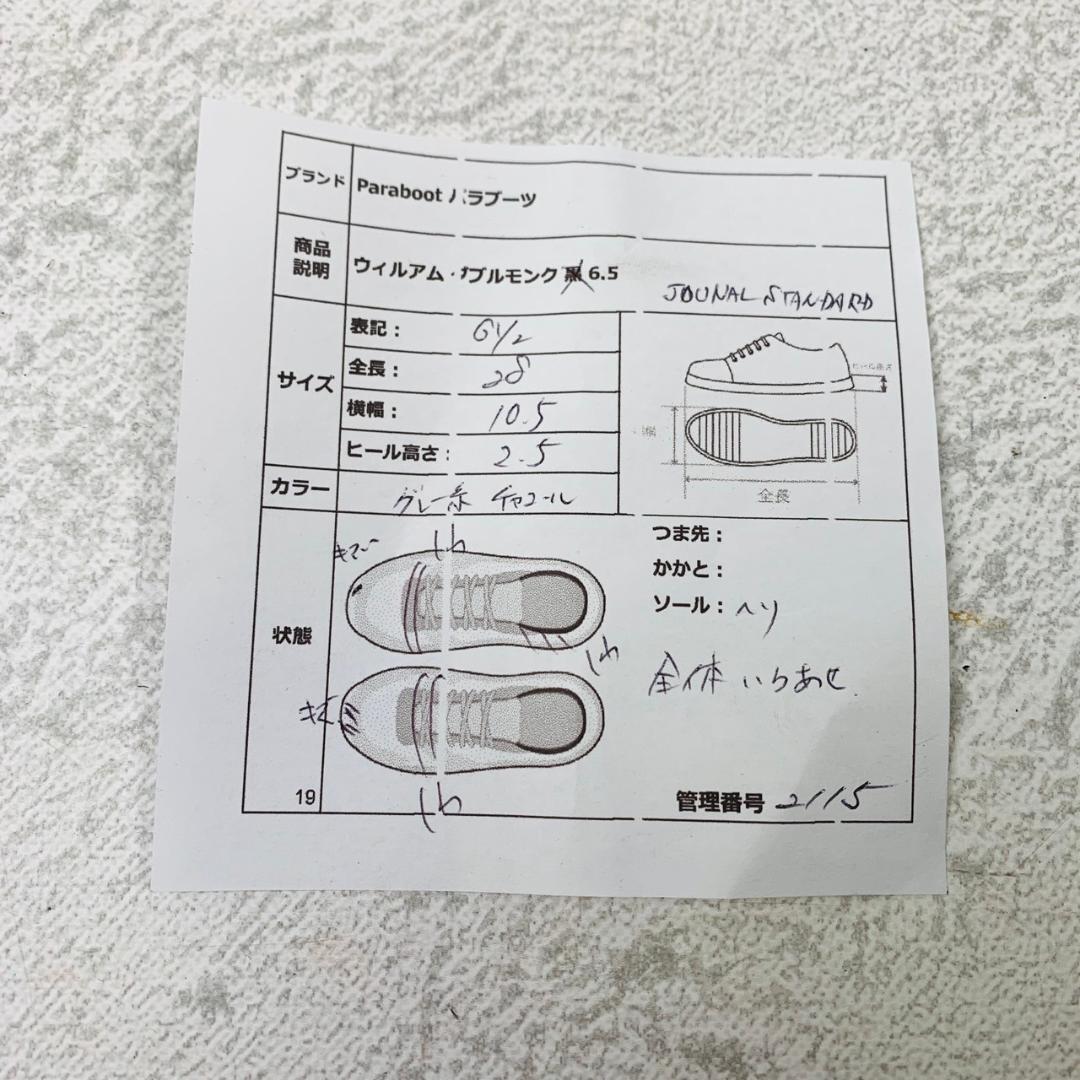 ブランド Paraboot パラブーツ
商品説明 ウィルアム・ダブルモンク 黒 6.5
JOUNAL STANDARD
サイズ
表記: 6 1/2
全長: 28
横幅: 10.5
ヒール高さ: 2.5
ヒール高さ
幅
全長
カラー グレー系 チャコール
状態
キズ
しわ
しわ
キズ
しわ
つま先:
かかと:
ソール: ヘリ
全体 いろあせ
19
管理番号 2115